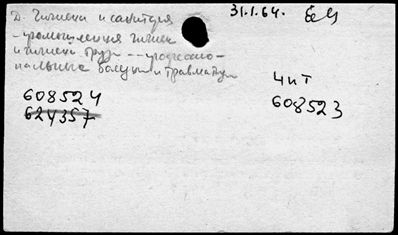 Д. Гигиена и санитария
31.1.64.
- промышленная гигиен
и гигиена труда -- профессио-
нальные болезни и травматизм
608524
624357
Чит
608523